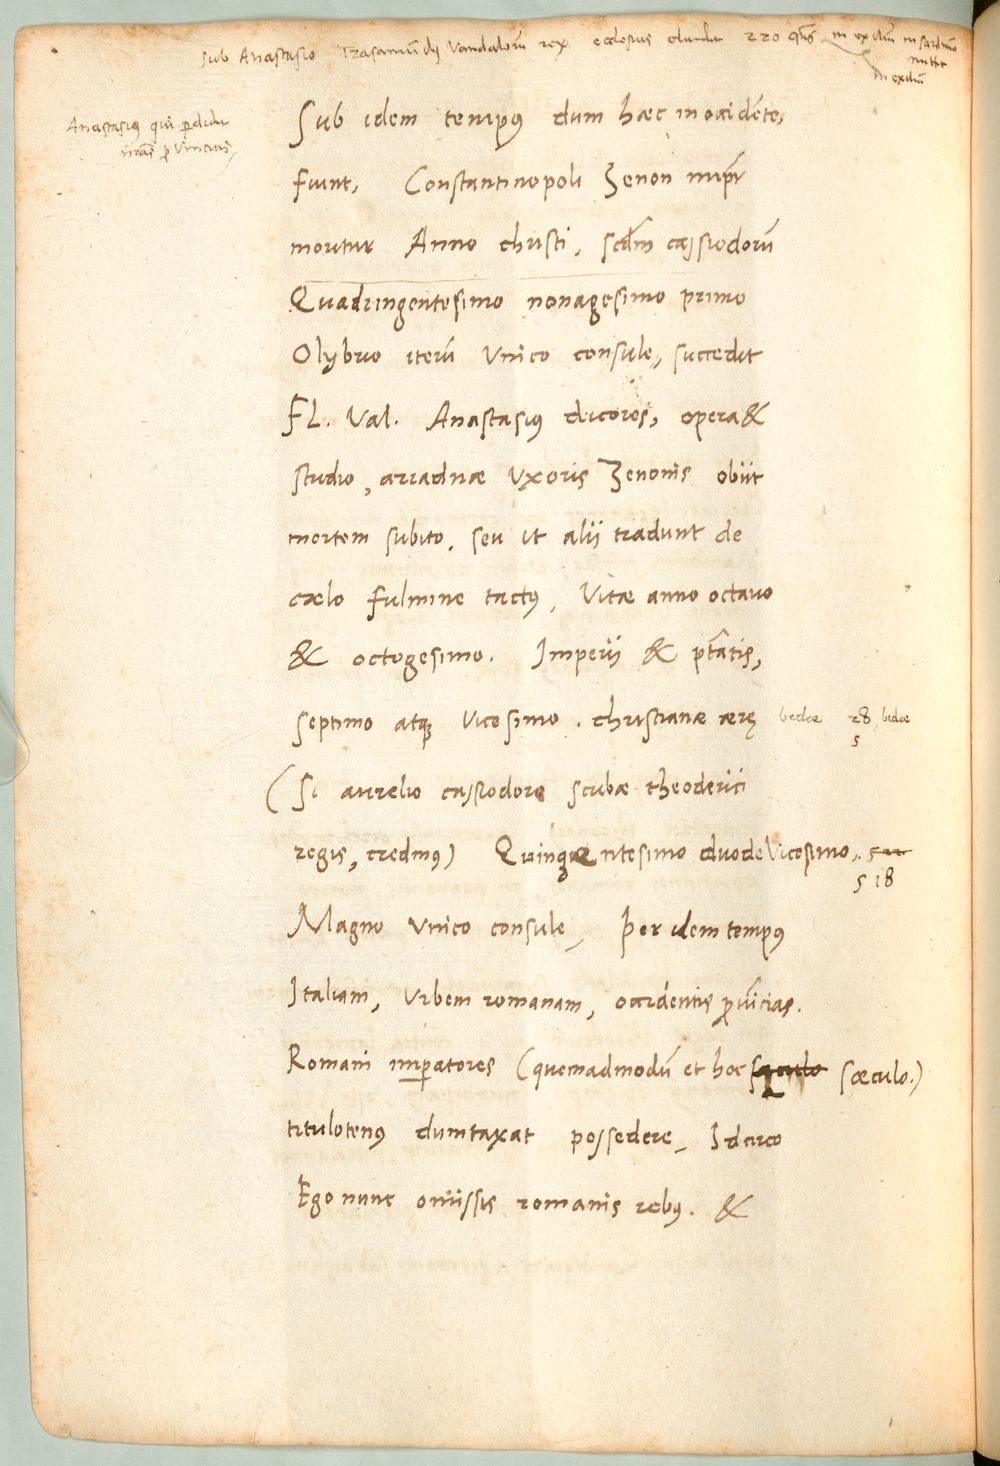 sub Anastasio Trasamūdy Vandalorū rex ecclesias claudit 220 in exiliū in Sardiniā
mittit
in exiliū
Anastasius qui perdidit
Sub idem tempus dum hæc in occidēte,
fiunt, Constantinopoli Zenon imp̄r
moritur Anno christi, scdm cassiodorū
Quadringentesimo nonagesimo primo
Olybrio iterū Vnico consule, succedit
FL. Val. Anastasius dicoros, opera &
studio, ariadnæ Vxoris Zenonis obiit
mortem subito, seu ut alii tradunt de
cælo fulmine tactus, Vitæ anno octavo
& octogesimo. Imperii & p̄tatis,
septimo atq3 Vicesimo. christianæ ærę bedæ 28 bedæ
5
(Si aurelio cassiodoro scribæ theoderici
regis, credimus) Quinquentesimo duodeVicesimo,.
518
Magno Vnico consule, Per idem tempus
Italiam, Vrbem romanam, occidentis p̄vīcias.
Romani imperatores (quemadmodū et hoc sæculo sæculo.)
titulotenus dumtaxat possedere, Idcirco
Ego nunc omissis romanis rebus. &